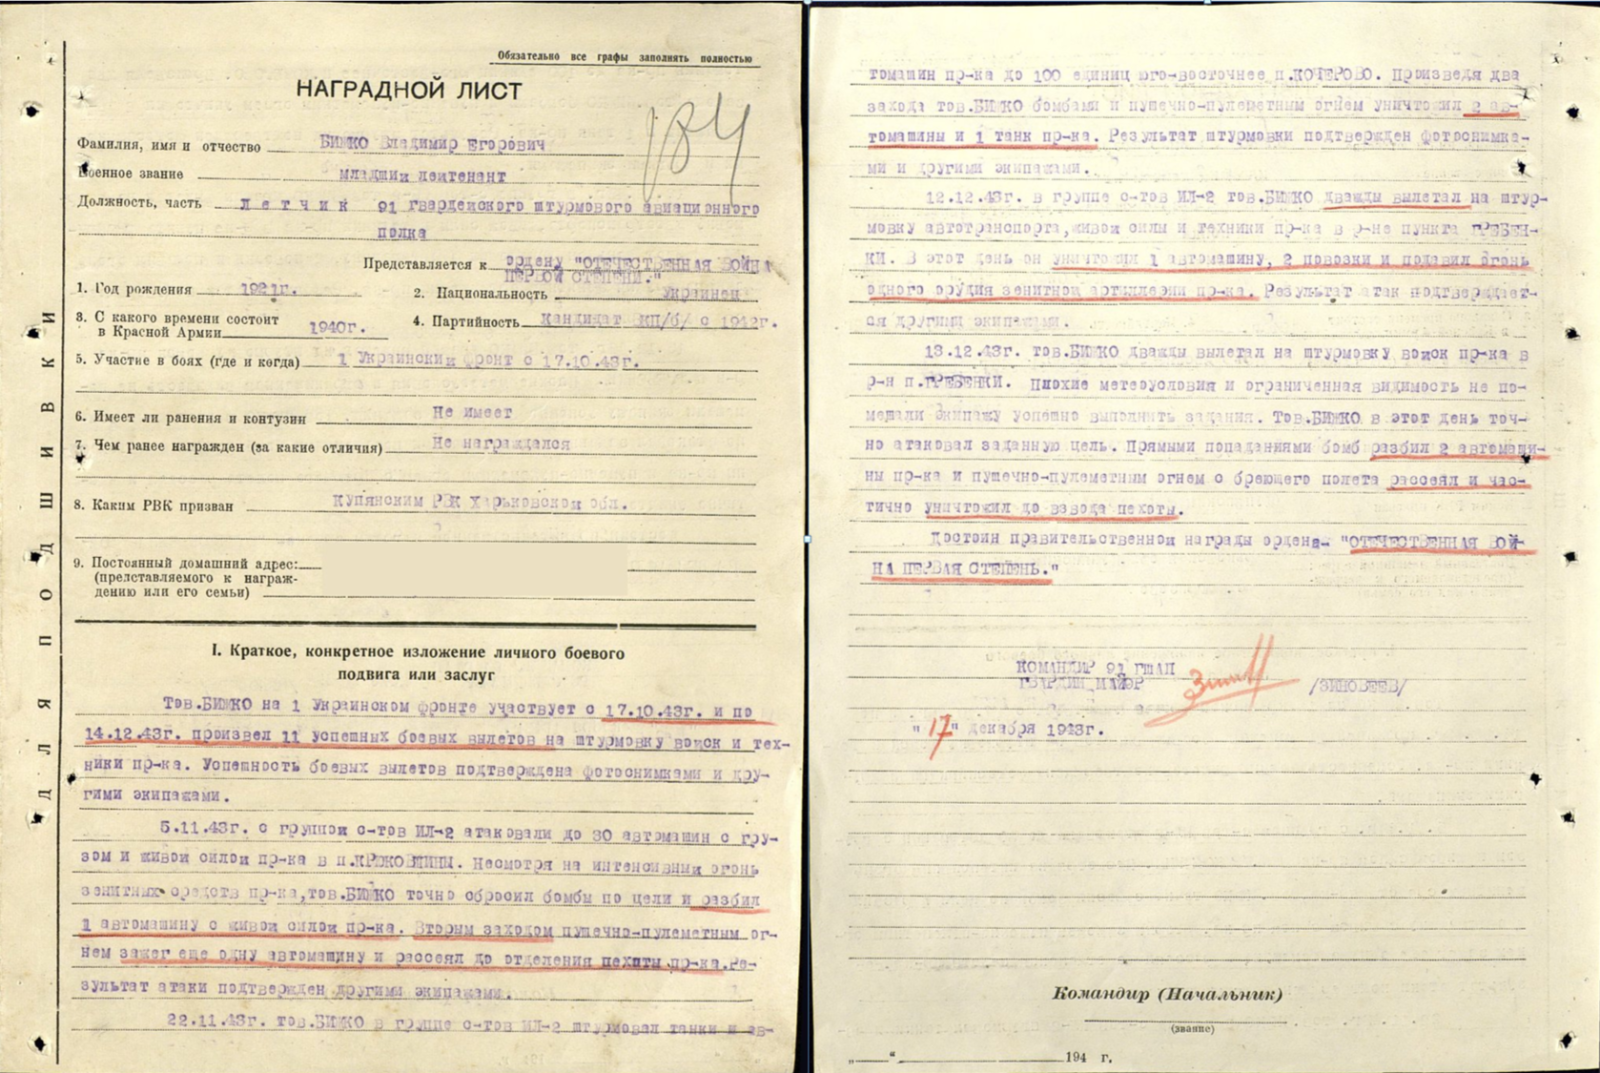 Обязательно все графы заполнять полностью
НАГРАДНОЙ ЛИСТ
184
Фамилия, имя и отчество БИЖКО Владимир Егорович
Военное звание младший лейтенант
Должность, часть Летчик 91 гвардейского штурмового авиационного
полка
Представляется к ордену "ОТЕЧЕСТВЕННАЯ ВОЙНА
ПЕРВОЙ СТЕПЕНИ."
1. Год рождения 1921г.
2. Национальность Украинец
3. С какого времени состоит
в Красной Армии 1940г.
4. Партийность Кандидат ВКП/б/ с 1942г.
5. Участие в боях (где и когда) 1 Украинский фронт с 17.10.43г.
6. Имеет ли ранения и контузии Не имеет
7. Чем ранее награжден (за какие отличия) Не награждался
8. Каким РВК призван Купянским РВК Харьковской обл.
9. Постоянный домашний адрес:
(представляемого к награж-
дению или его семьи)
ДЛЯ ПОДШИВКИ
I. Краткое, конкретное изложение личного боевого
подвига или заслуг
Тов.БИЖКО на 1 Украинском фронте участвует с 17.10.43г. и по
14.12.43г. произвел 11 успешных боевых вылетов на штурмовку войск и тех-
ники пр-ка. Успешность боевых вылетов подтверждена фотоснимками и дру-
гими экипажами.
5.11.43г. с группой с-тов ИЛ-2 атаковали до 30 автомашин с гру-
зом и живой силой пр-ка в п.КРЮКОВЩИНЫ. Несмотря на интенсивный огонь
зенитных средств пр-ка,тов.БИЖКО точно сбросил бомбы по цели и разбил
1 автомашину с живой силой пр-ка. Вторым заходом пушечно-пулеметным ог-
нем зажег еще одну автомашину и рассеял до отделения пехоты пр-ка.Ре-
зультат атаки подтвержден другими экипажами.
22.11.43г. тов.БИЖКО в группе с-тов ИЛ-2 штурмовал танки и ав-
томашин пр-ка до 100 единиц юго-восточнее п.КОЧЕРОВО. Произведя два
захода тов.БИЖКО бомбами и пушечно-пулеметным огнем уничтожил 2 ав-
томашины и 1 танк пр-ка. Результат штурмовки подтвержден фотоснимка-
ми и другими экипажами.
12.12.43г. в группе с-тов ИЛ-2 тов.БИЖКО дважды вылетал на штур-
мовку автотранспорта,живой силы и техники пр-ка в р-не пункта ГРЕБЕН-
КИ. В этот день он уничтожил 1 автомашину, 2 повозки и подавил огонь
одного орудия зенитной артиллерии пр-ка. Результат атак подтверждает-
ся другими экипажами.
13.12.43г. тов.БИЖКО дважды вылетал на штурмовку войск пр-ка в
р-н п.ГРЕБЕНКИ. Плохие метеоусловия и ограниченная видимость не по-
мешали экипажу успешно выполнить задания. Тов.БИЖКО в этот день точ-
но атаковал заданную цель. Прямыми попаданиями бомб разбил 2 автомаши-
ны пр-ка и пушечно-пулеметным огнем с бреющего полета рассеял и час-
тично уничтожил до взвода пехоты.
Достоин правительственной награды ордена- "ОТЕЧЕСТВЕННАЯ ВОЙ-
НА ПЕРВАЯ СТЕПЕНЬ."
КОМАНДИР 91 ГШАП
ГВАРДИИ МАЙОР /ЗИНОВЕЕВ/
"17" декабря 1943г.
Командир (Начальник)
(звание)
„ “ 194 г.